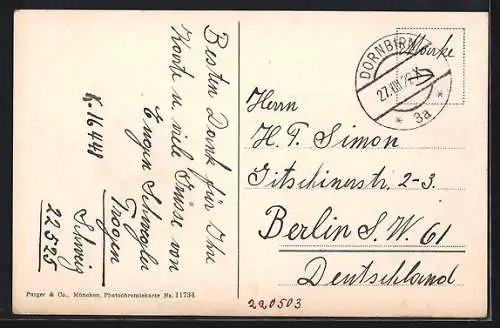 Besten Dank für Ihre
Karte u. viele Grüsse von
Eugen Schwegler
Trogen
Schweiz
22525
K. 16441
Purger & Co., München, Photochromiekarte No. 11734
Marke
DORNBIRN
3a
Herrn
H. F. Simon
Gitschinerstr. 2-3.
Berlin S.W. 61
Deutschland
220503